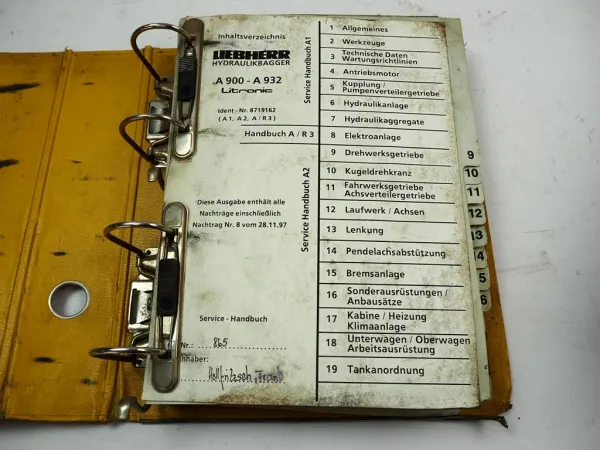 Inhaltsverzeichnis
LIEBHERR
HYDRAULIKBAGGER
A 900 - A 932
Litronic
Ident - Nr. 8719162
( A 1, A 2, A / R 3 )
Handbuch A / R 3
Diese Ausgabe enthält alle
Nachträge einschließlich
Nachtrag Nr. 8 vom 28.11.97
Service - Handbuch
Nr.: 865
Inhaber:
Service Handbuch A1
Service Handbuch A2
1 Allgemeines
2 Werkzeuge
3 Technische Daten
Wartungsrichtlinien
4 Antriebsmotor
5 Kupplung /
Pumpenverteilergetriebe
6 Hydraulikanlage
7 Hydraulikaggregate
8 Elektroanlage
9 Drehwerksgetriebe
10 Kugeldrehkranz
11 Fahrwerksgetriebe
Achsverteilergetriebe
12 Laufwerk / Achsen
13 Lenkung
14 Pendelachsabstützung
15 Bremsanlage
16 Sonderausrüstungen /
Anbausätze
17 Kabine / Heizung
Klimaanlage
18 Unterwagen / Oberwagen
Arbeitsausrüstung
19 Tankanordnung
9
10
11
12
13
4
5
6